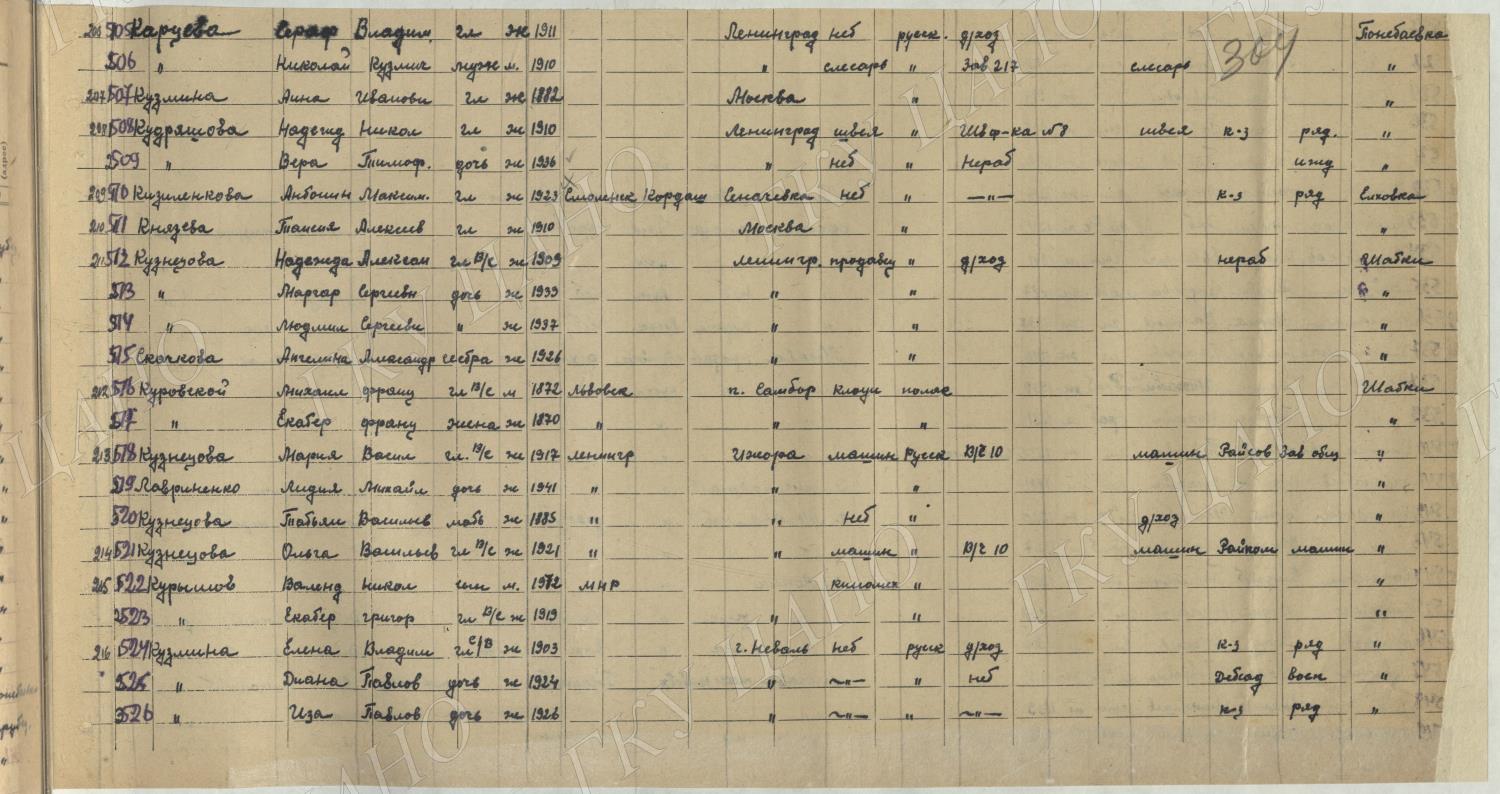 505 Карцева Сераф Владим. гл ж 1911 Ленинград неб русск. д/хоз Понетаевка
304
506 " Николай Кузмич муж м. 1910 " слесарь " Зав 217 слесарь "
207 507 Кузмина Анна Ивановн гл ж 1882 Москва " "
508 Кудряшова Надежд Никол гл ж 1910 Ленинград швея " Шв ф-ка №8 швея к-з ряд. "
509 " Вера Тимоф. дочь ж 1936 " неб " нераб ижд "
209 510 Кизиленкова Антонин Максим. гл ж 1923 Смоленск Кордаш Сеначевка неб " —"— к-з ряд Елховка
210 511 Князева Таисия Алексеев гл ж 1910 Москва " "
512 Кузнецова Надежда Алексан гл в/с ж 1909 Ленингр. продавец " д/хоз нераб Шатки
513 " Маргар Сергеевн дочь ж 1933 " " "
514 " Людмил Сергеевн " ж 1937 " " "
515 Скачкова Ангелина Александр сестра ж 1926 " " "
212 516 Куровской Михаил франц гл в/с м 1872 Львовск п. Самбор клоун поляк Шатки
517 " Екатер франц жена ж 1870 " " " "
213 518 Кузнецова Мария Васил гл. в/с ж 1917 Ленингр Ижора машин Русск В/ч 10 машин Райсов Зав общ "
519 Лавриненко Лидия Михайл дочь ж 1941 " " " "
520 Кузнецова Татьян Васильев мать ж 1885 " " неб " д/хоз "
214 521 Кузнецова Ольга Васильев гл в/с ж 1921 " " машин " В/ч 10 машин Райком машин "
215 522 Курышов Валенд Никол сын м. МНР " "
523 " Екатер григор гл в/с ж 1919 " " "
216 524 Кузмина Елена Владим гл с/в ж 1903 г. Неваль неб русск д/хоз к-з ряд "
525 " Диана Павлов дочь ж 1924 " —"— " неб Детсад восп "
526 " Иза Павлов дочь ж 1926 " —"— " —"— к-з ряд "
ГКУ ЦАНО